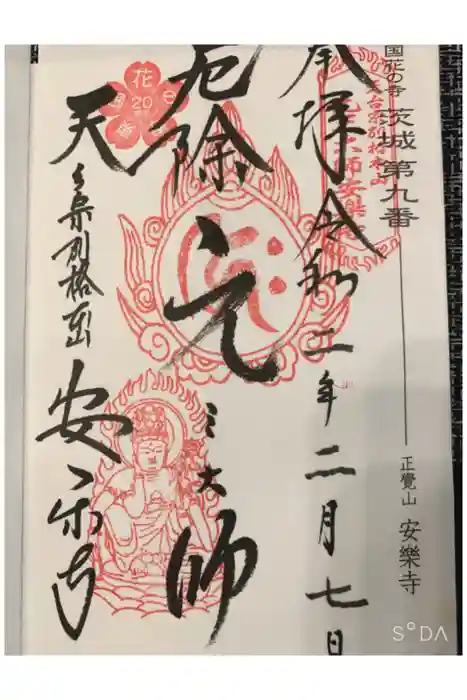 東国花の寺 茨城 第九番
正覺山 安樂寺
奉拝 令和二年二月七日
厄除 元三大師
天台宗別格本山
安楽寺
花
20
SODA